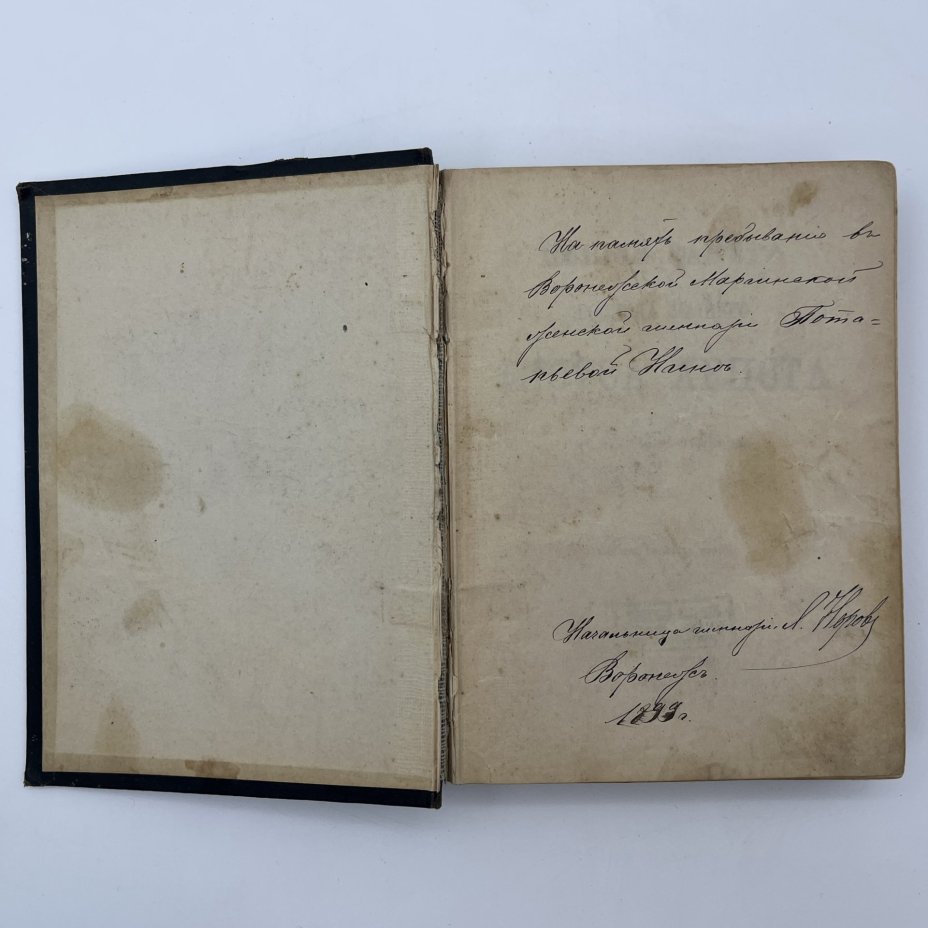 На память пребыванія въ
Воронежской Маріинской
женской гимназіи Пота-
пьевой Нинѣ.
Начальница гимназіи Л.
Воронежъ.
1899 г.